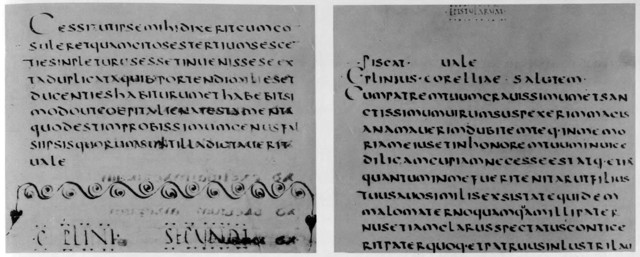 CESSITUTIPSEMIHIDIXERITCUMCO
SULERETQUAMCITOSESTERTIUMSESCE
TIESINPLETURUSESSETINUENISSESEEX
TADUPLICATAQUIBPORTENDIMILIESET
DUCENTIESHABITURUMETHABEBITSI
MODOUTCOEPITALIENATESTAMENTA
QUODESTIMPROBISSIMUMGENUSFAL
SIIPSISQUORUMSUNTILLADICTAUERIT
UALE
C PLINI SECUNDI
EPISTULARUM
PISCAT· UALE
C PLINIUS·CORELLIAE SALUTEM·
CUMPATREMTUUMGRAUISSIMUMETSAN
CTISSIMUMUIRUMSUSPEXERIMMAGIS
ANAMAUERIMDUBITEMTEQ·INMEMO
RIAMEIUSETINHONOREMTUUMINUICE
DILIGAMCUPIAMNECESSEESTATQ·ETIA
QUANTUMINMEFUERITENITARUTFILIUS
TUUSAUOSIMILISEXSISTATEQUIDEM
MALOMATERNOQUAMQ·AMILLIPATER
NUSETIAMCLARUSSPECTATUSCONTIGE
RITPATERQUOQ·ETPATRUUSINLUSTRILAU